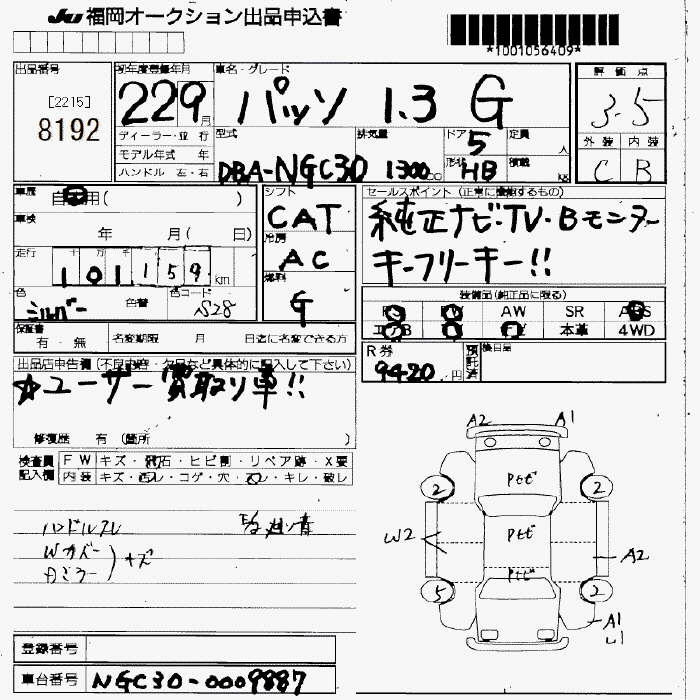 JU 福岡オークション出品申込書
*1001056409*
出品番号 初年度登録年月 車名・グレード 評価点
[2215]
8192
22 9月 パッソ 1.3 G 3.5
ディーラー・並行 型式 排気量 ドア 定員 外装 内装
モデル年式 年 5 人
ハンドル 左・右 DBA-NGC30 1300cc 形状 HB 積載 kg C B
車歴 自家用( ) シフト セールスポイント(正常に機能するもの)
車検 年 月( 日) CAT 純正ナビ・TV・Bモニター
冷房
走行 十万 千 AC キーフリーキー!!
101159km 燃料
色 シルバー 色替 色コード S28 G 装備品(純正品に限る)
PS PW AW SR ABS
保証書 有・無 名変期限 月 日迄に名変できる方 エアB 本革 4WD
R券 9420円 預託済 後日品
出品店申告欄(不良内容・欠品など具体的に記入して下さい)
☆ユーザー買取り車!!
修復歴 有 (箇所 )
検査員記入欄 FW キズ・飛石・ヒビ割・リペア跡・X要
内装 キズ・ ・コゲ・穴・ ・キレ・破レ
A2 A1
2 2
ハンドルスレ
Wカバー
Aミラー
キズ
W2 A2
5 2
A1
U1
登録番号
車台番号 NGC30-0009887